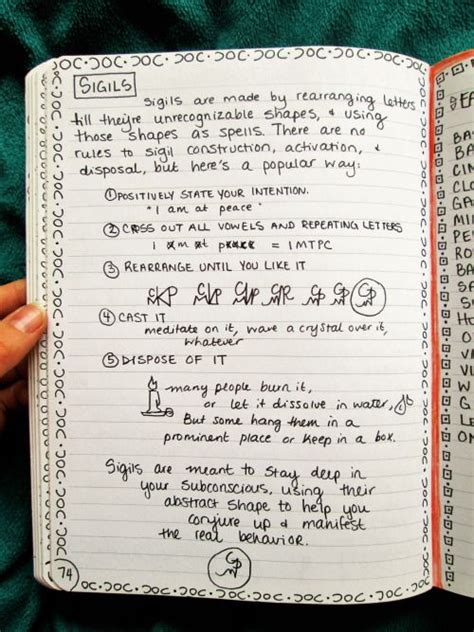 SIGILS
Sigils are made by rearranging letters
till they're unrecognizable shapes, & using
those shapes as spells. There are no
rules to sigil construction, activation, &
disposal, but here's a popular way:
① POSITIVELY STATE YOUR INTENTION.
"I am at peace"
② CROSS OUT ALL VOWELS AND REPEATING LETTERS
I am at peace = IMTPC
③ REARRANGE UNTIL YOU LIKE IT
④ CAST IT
meditate on it, wave a crystal over it,
whatever
⑤ DISPOSE OF IT
many people burn it,
or let it dissolve in water,
But some hang them in a
prominent place or keep in a box.
Sigils are meant to stay deep in
your subconscious, using their
abstract shape to help you
conjure up & manifest
the real behavior.
74